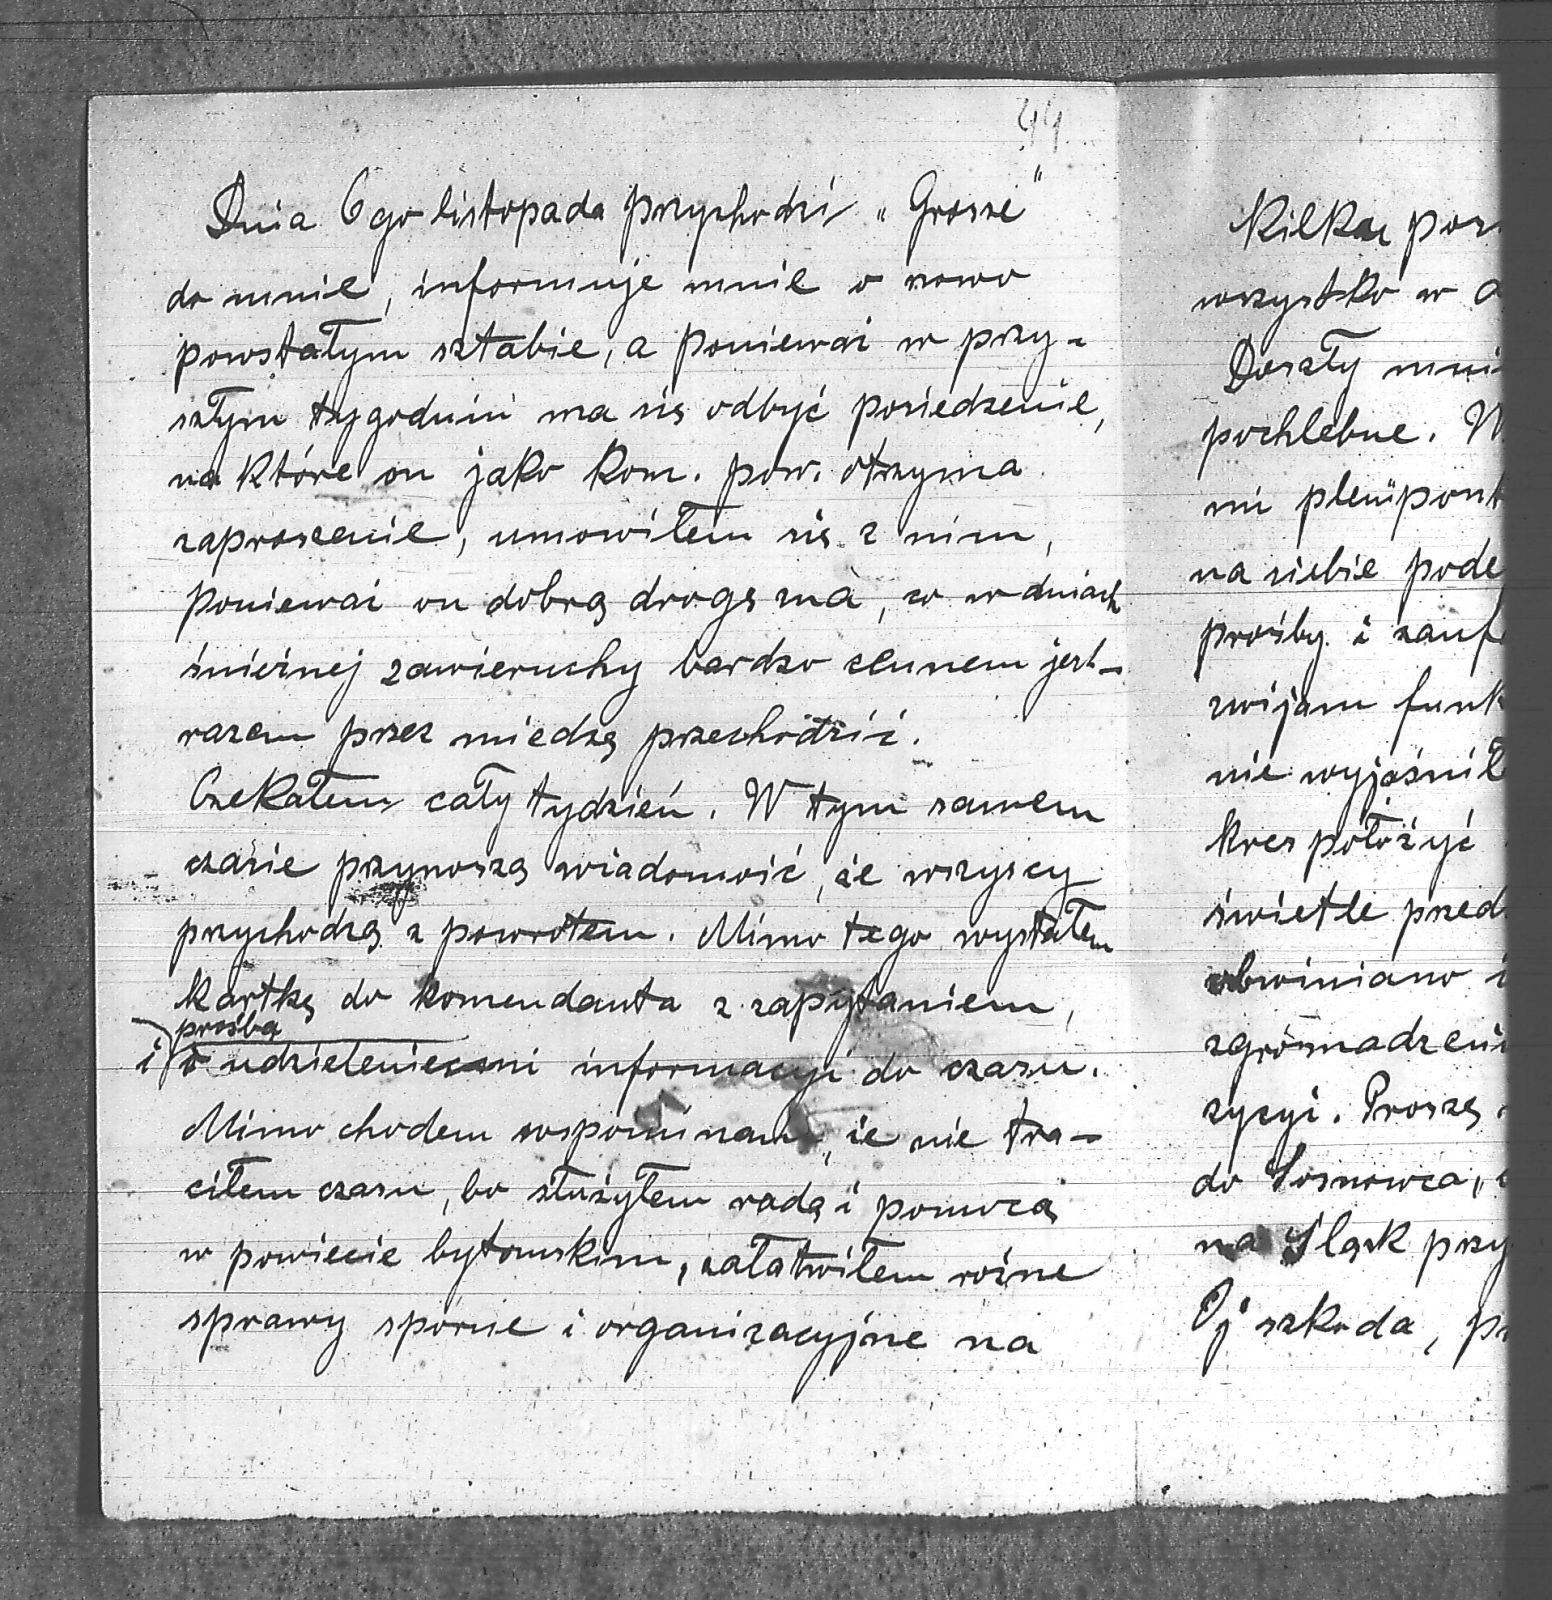 44
Dnia 6go listopada przychodzi „Grosze"
do mnie, informuje mnie o nowo
powstałym sztabie, a ponieważ w przy-
szłym tygodniu ma się odbyć posiedzenie,
na które on jako kom. pow. otrzyma
zaproszenie, umowiłem się z nim,
ponieważ on dobrą drogę zna, co w dniach
śnieżnej zawieruchy bardzo cennem jest-
razem przez miedzę przechodzić.
Czekałem cały tydzień. W tym samem
czasie przynoszą wiadomość, że wszyscy
przychodzą z powrotem. Mimo tego wysłałem
kartkę do komendanta z zapytaniem,
prośbą
i o udzielenie mi informacyi do czasu.
Mimo chodem wspominam, że nie tra-
ciłem czasu, bo służyłem radą i pomocą
w powiecie bytomskim, załatwiłem rożne
sprawy sporne i organizacyjne na
Kilka
wszystko w
Doszły
pochlebne.
mi
na siebie
prośby i
zwijam
nie wyjaśnił
kres położyć
świetle
obwiniano i
zycyi. Proszę
do Sosnowca,
na Śląsk
Oj szkoda,